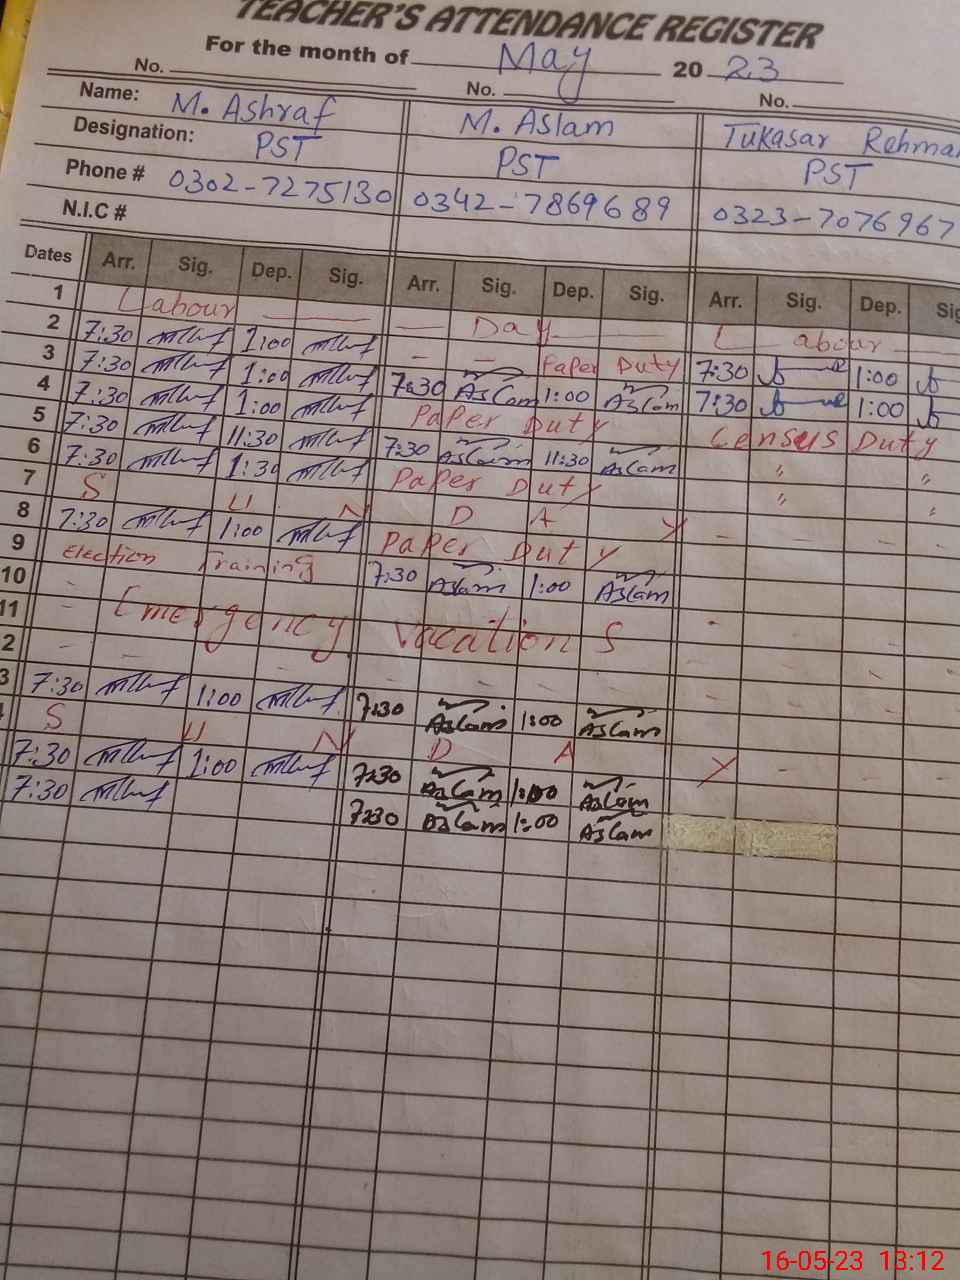 TEACHER'S ATTENDANCE REGISTER
For the month of May 20 23
No. No. No.
Name: M. Ashraf M. Aslam Tukasar Rehman
Designation: PST PST PST
Phone # 0302-7275130 0342-7869689 0323-7076967
N.I.C #
Dates Arr. Sig. Dep. Sig. Arr. Sig. Dep. Sig. Arr. Sig. Dep. Sig
1 Labour Day Labour
2 7:30 1:00 - - Paper Duty 7:30 1:00
3 7:30 1:00 7:30 Aslam 1:00 Aslam 7:30 1:00
4 7:30 1:00 Paper Duty Census Duty
5 7:30 11:30 7:30 Aslam 11:30 Aslam " "
6 7:30 1:30 Paper Duty " "
7 S U N D A Y
8 7:30 1:00 Paper Duty
9 Election Training 7:30 Aslam 1:00 Aslam
10
11 Emergency vacations
2
3 7:30 1:00 7:30 Aslam 1:00 Aslam
S U N D A Y
7:30 1:00 7:30 Aslam 1:00 Aslam
7:30 7:30 Aslam 1:00 Aslam
16-05-23 13:12